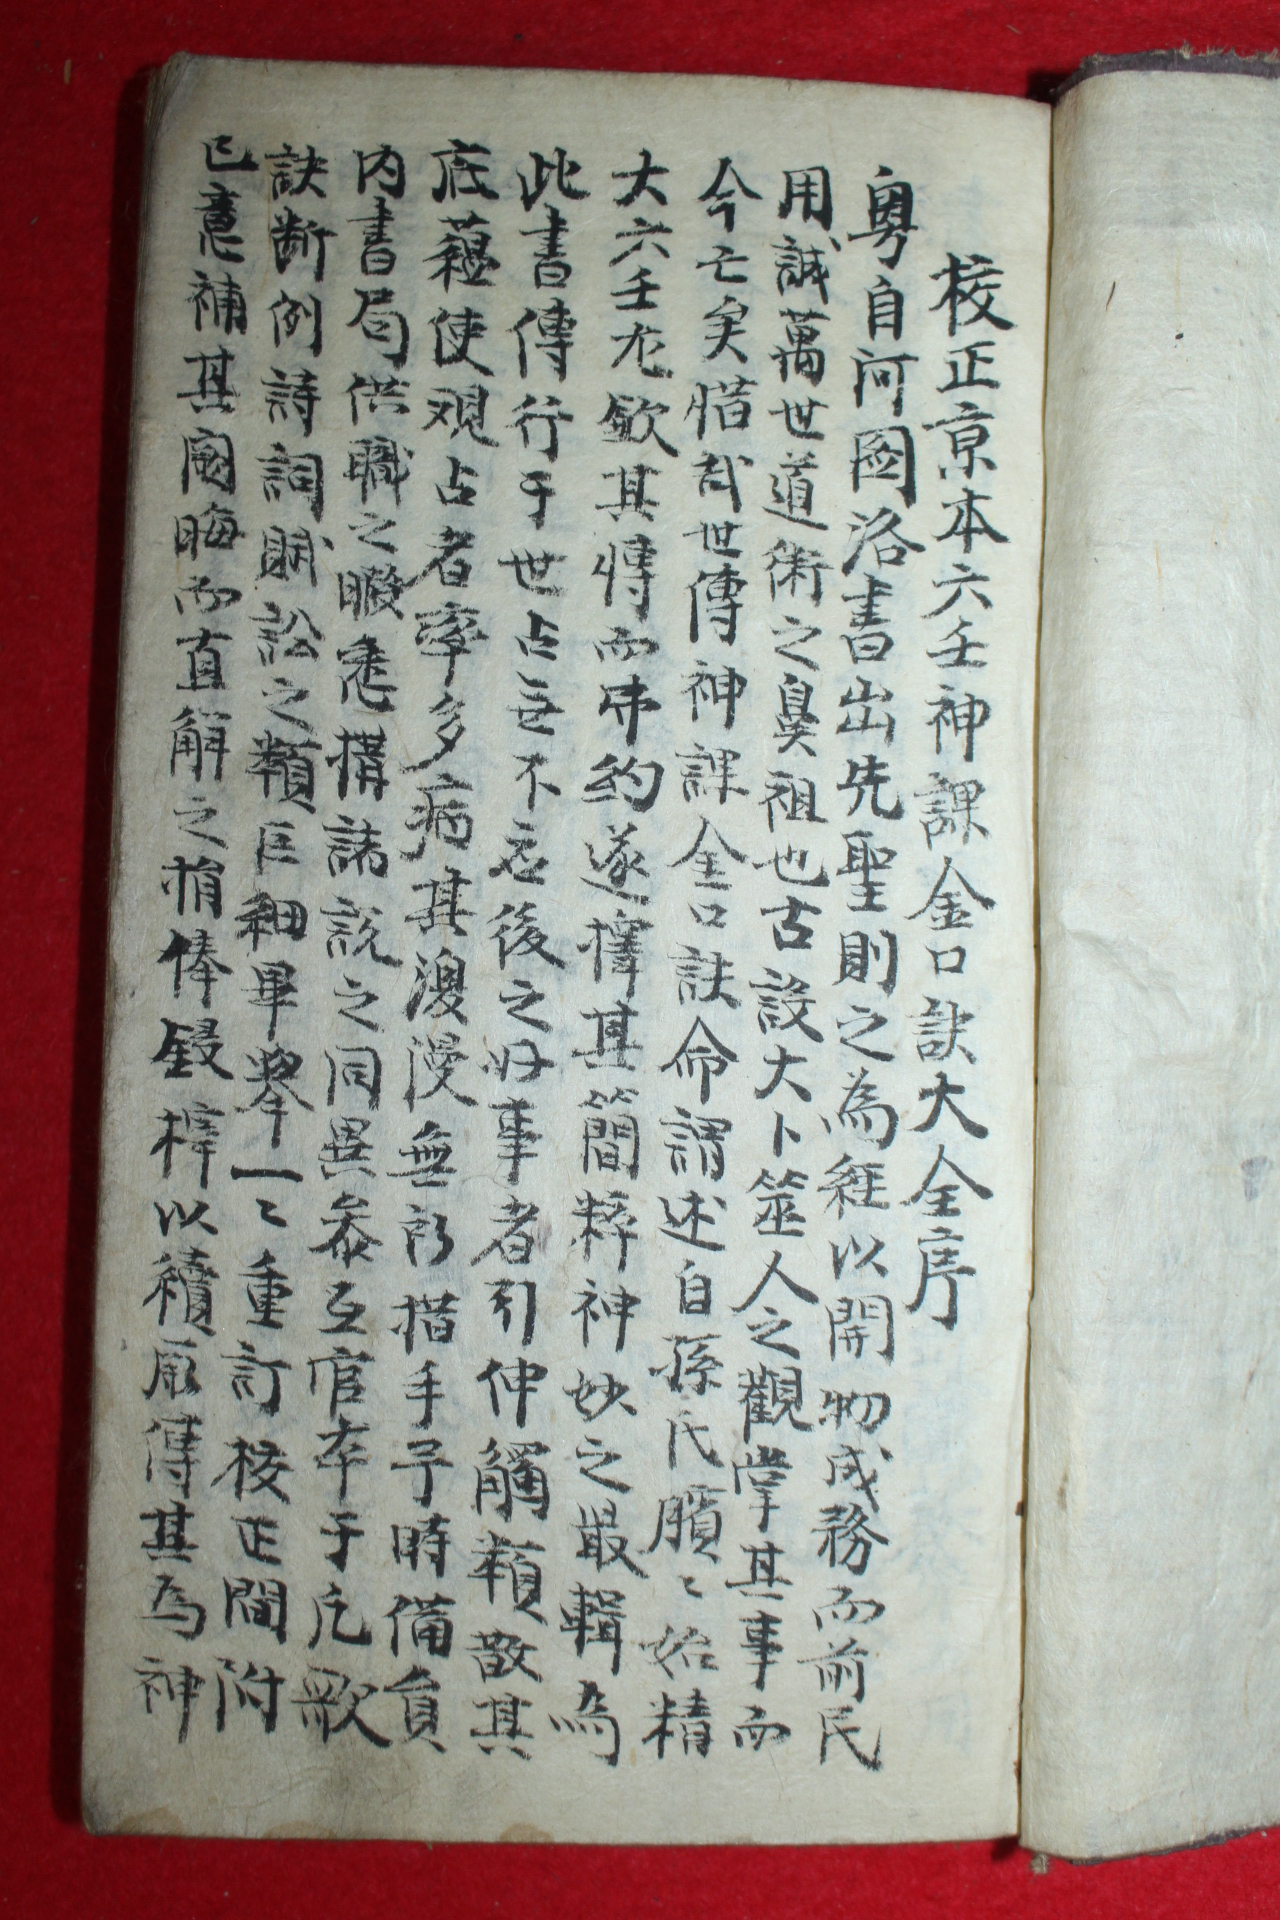 校正京本六壬神課金口訣大全序
粤自河圖洛書出先聖則之為経以開物成務而前民
用誠萬世道術之鼻祖也古設大卜筮人之觀掌其事而
今亡矣惜哉世傳神課金口訣命謂述自孫氏臏〻始精
大六壬尤欲其傳而弗約遂擇其簡粹神妙之最輯為
此書傳行于世占无不應後之好事者引伸觸類散其
底蘊使观占者率多病其漫漫無所措手予時備員
内書局供職之暇悉搆諸說之同異叅互官本于凡歌
訣断例詩詞賦訟之類巨細畢舉一〻重訂校正間附
已意補其闕晦而直觧之捐俸鋟梓以續厥傳其為神